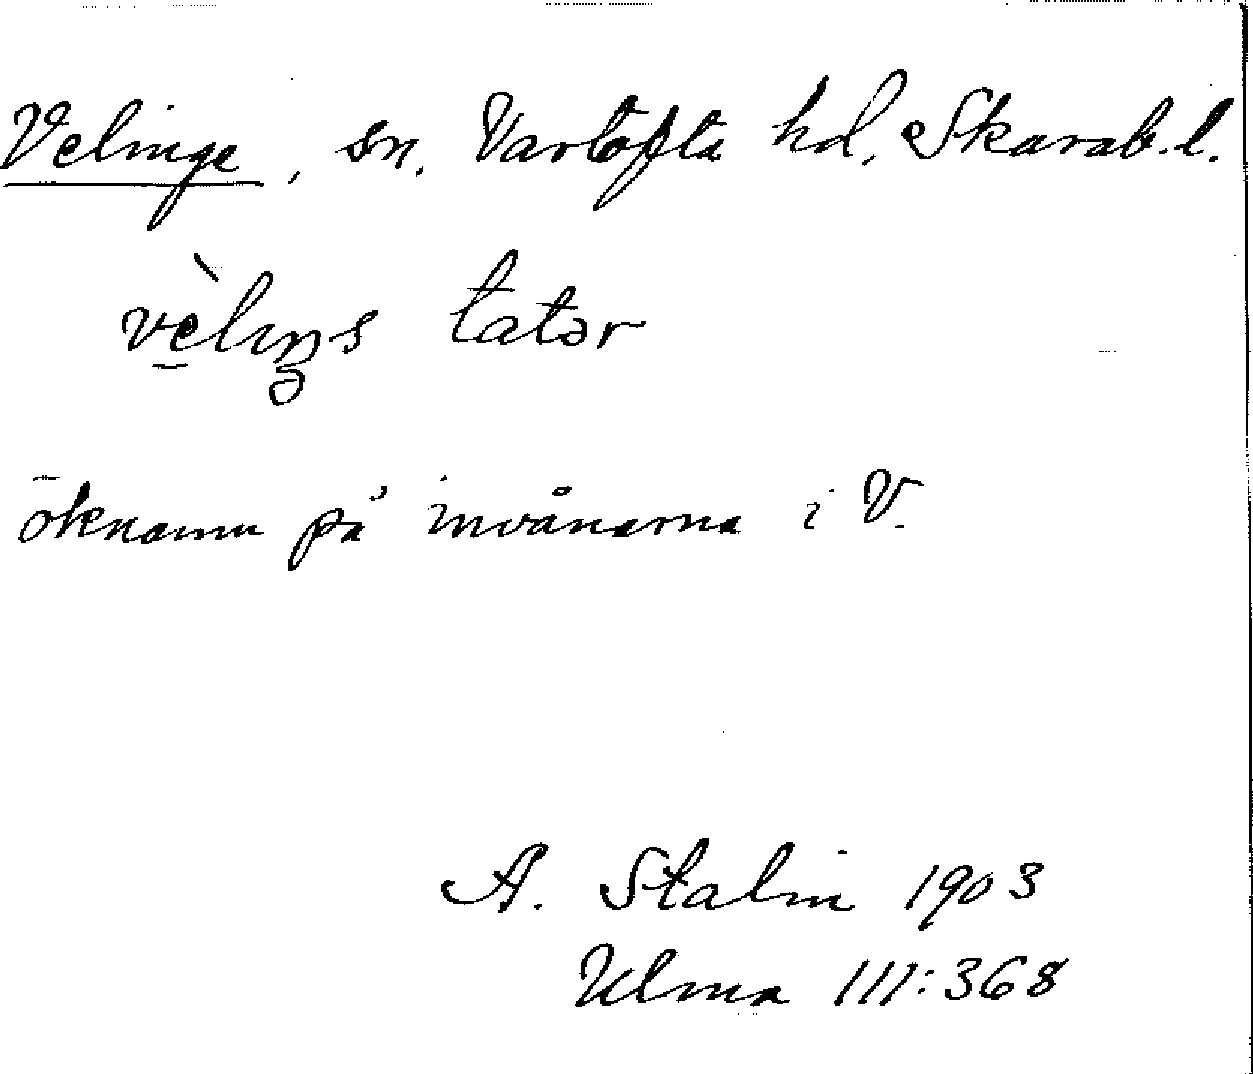 Velinge, sn. Vartofta hd. Skarab. l.
vèlıŋs tatər
öknamn på invånarna i V.
A. Stalin 1903
Ulma 111:368